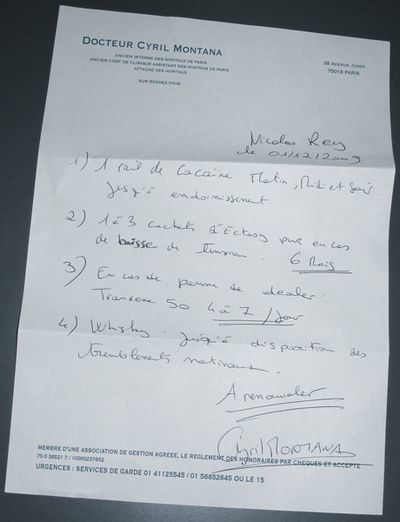 DOCTEUR CYRIL MONTANA
ANCIEN INTERNE DES HOPITAUX DE PARIS
ANCIEN CHEF DE CLINIQUE ASSISTANT DES HOPITAUX DE PARIS
ATTACHE DES HOPITAUX
SUR RENDEZ-VOUS
38 AVENUE JUNOT
75018 PARIS
Nicolas Rey
le 01/12/2009
1) 1 rail de Cocaïne Matin, Midi et Soir
jusqu'à endormissement
2) 1 à 3 cachets d'Ectasy pur en cas
de baisse de Tension. 6 Mois
3) En cas de panne de dealer:
Tranxene 50 4 à 7 / Jour
4) Whisky: jusqu'à disparition des
tremblements matinaux.
A renouveler
Cyril MONTANA
MEMBRE D'UNE ASSOCIATION DE GESTION AGREEE, LE REGLEMENT DES HONORAIRES PAR CHEQUES ET ACCEPTE
75 0 38521 7 / 10000237652
URGENCES : SERVICES DE GARDE 01 41125545 / 01 56852645 OU LE 15